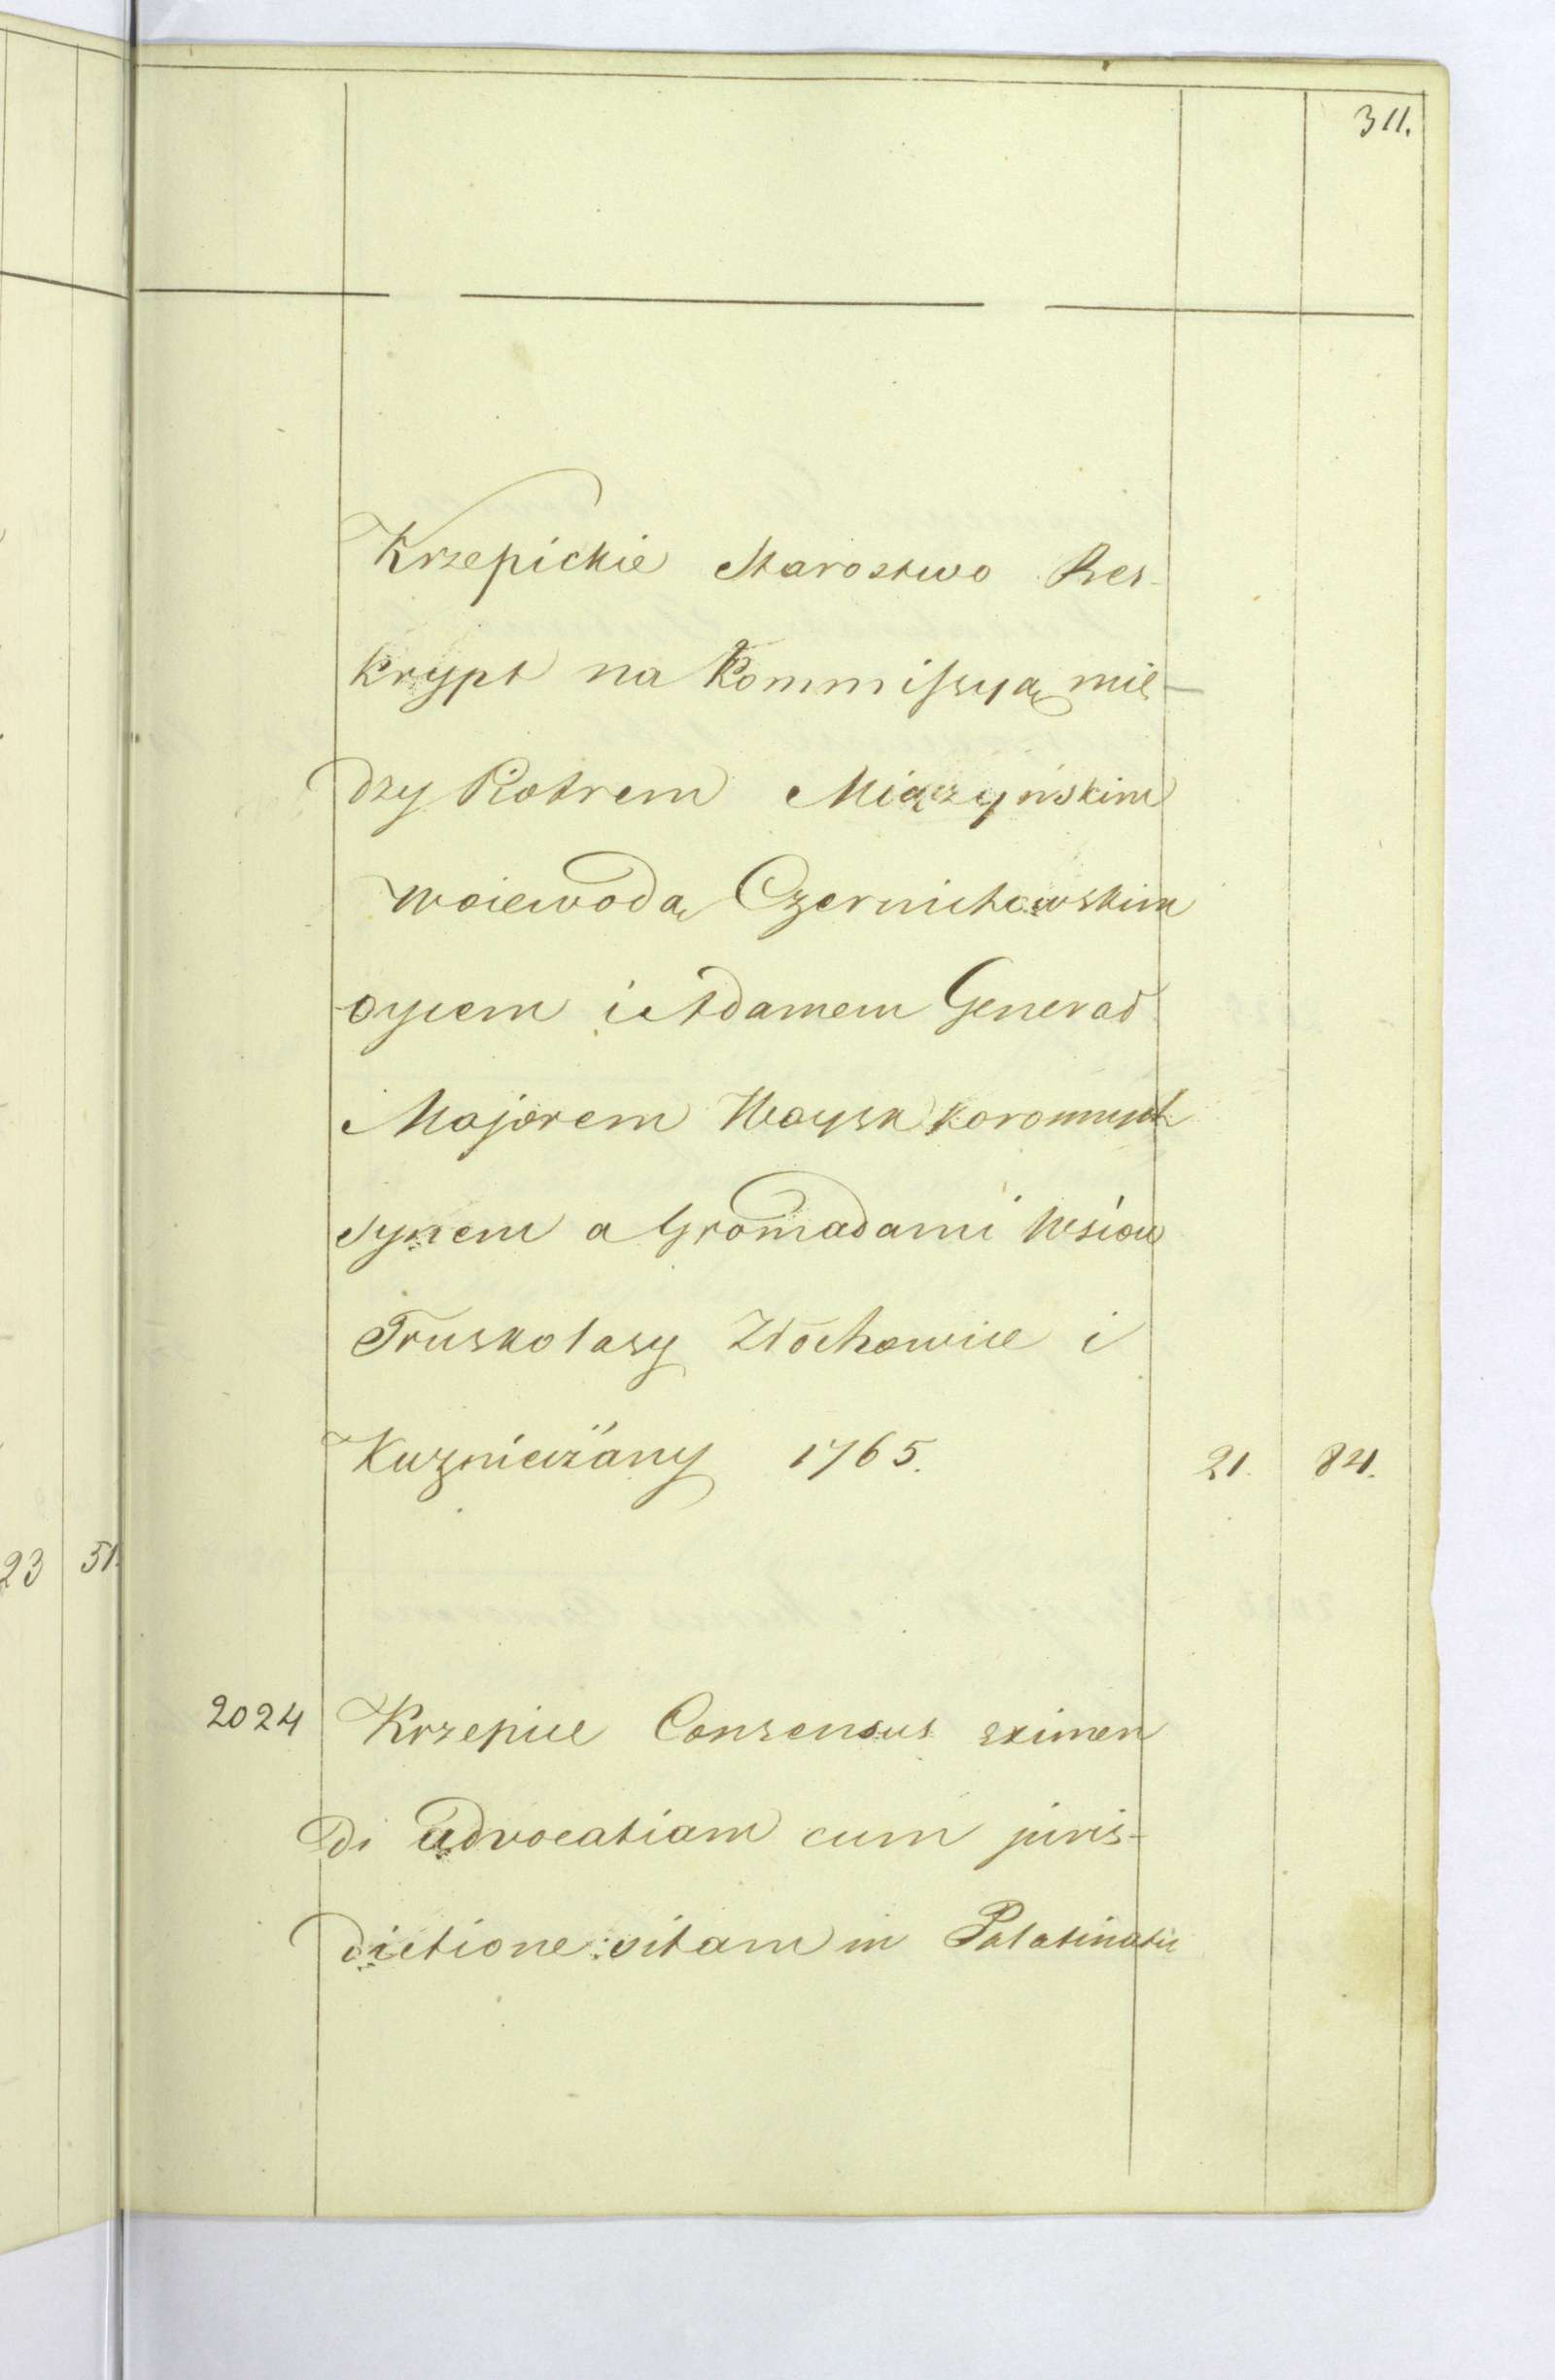 311.
Krzepickie Starostwo Res-
krypt na Kommissyą mię-
dzy Piotrem Miączyńskim
woiewodą Czernichowskim
oycem i Adamem Generał
Majorem Woysk koronnych
synem a Gromadami wsiow
Truskolasy Złochowice i
Kuzniczany 1765. 21. 84.
23 51.
2024 Krzepice Consensus eximen
di advocatiam cum juris-
dictione vitam in Palatinatu